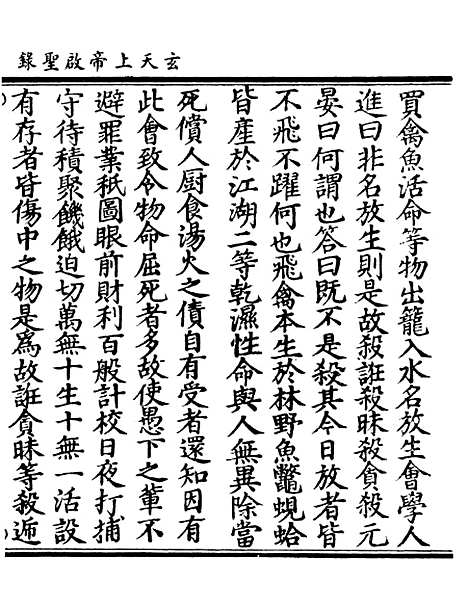 玄天上帝啟聖錄
買禽魚活命等物出籠入水名放生會學人
進曰非名放生則是故殺誑殺昧殺貪殺元
晏曰何謂也答曰既不是殺其今日放者皆
不飛不躍何也飛禽本生於林野魚鼈蜆蛤
皆産於江湖二等乾濕性命與人無異除當
死償人厨食湯火之債自有受者還知因有
此會致令物命屈死者多故使愚下之輩不
避罪業秖圖眼前財利百般計校日夜打捕
守待積聚饑餓迫切萬無十生十無一活設
有存者皆傷中之物是爲故誑貪昧等殺遁